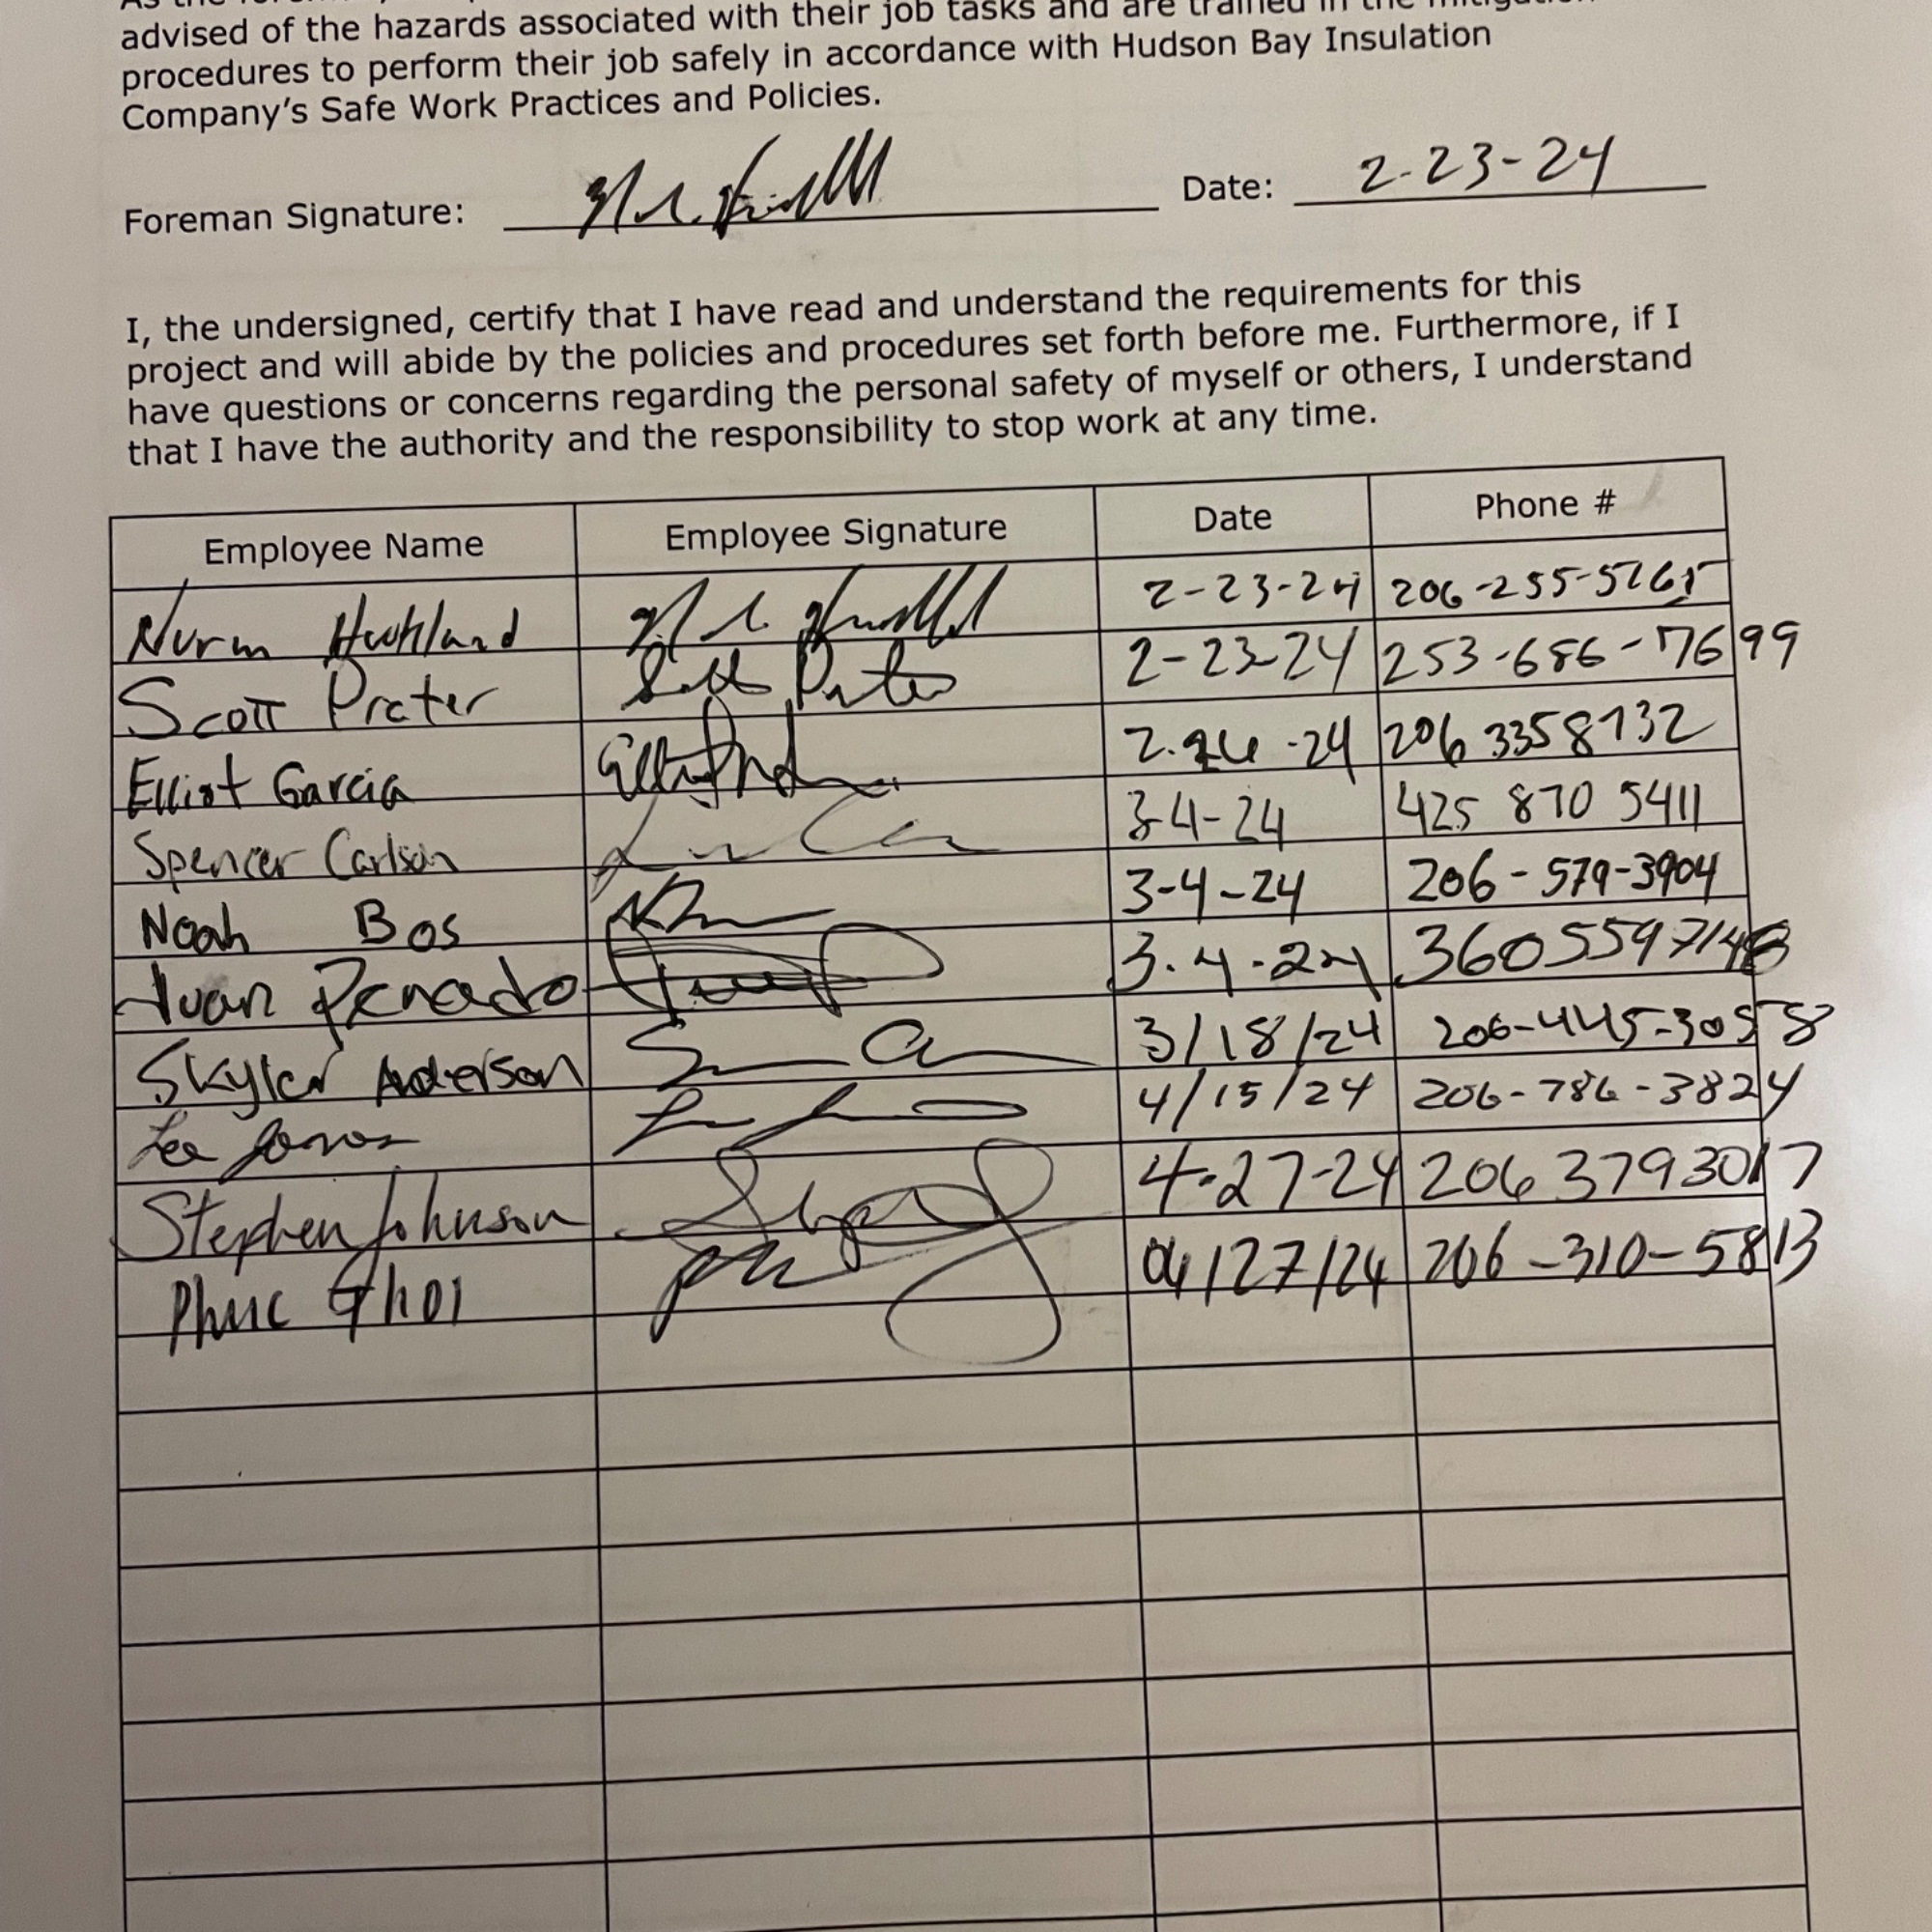 advised of the hazards associated with their job tasks and are trained in the
procedures to perform their job safely in accordance with Hudson Bay Insulation
Company's Safe Work Practices and Policies.
Foreman Signature: Date: 2-23-24
I, the undersigned, certify that I have read and understand the requirements for this
project and will abide by the policies and procedures set forth before me. Furthermore, if I
have questions or concerns regarding the personal safety of myself or others, I understand
that I have the authority and the responsibility to stop work at any time.
Employee Name Employee Signature Date Phone #
Norm 2-23-24 206-255-5765
Scott Prater 2-23-24 253-686-7699
Elliot Garcia 206 3358732
Spencer Carlson 3-4-24 425 870 5411
Noah Bos 3-4-24 206-579-3904
Juan Penado 3.4.24
Skyler Anderson 3/18/24 206-445-3058
Lee Jones 4/15/24 206-786-3824
Stephen Johnson 4-27-24 206 3793017
Phuc 04/27/24 206-310-5813